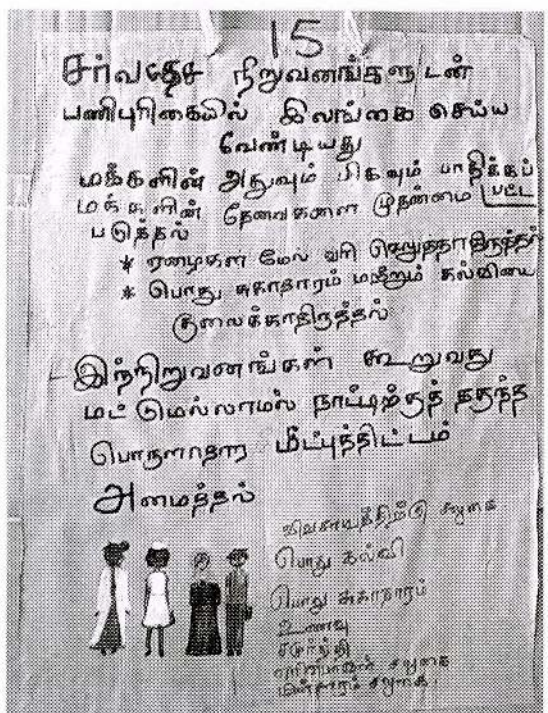 15
சர்வதேச நிறுவனங்களுடன்
பணிபுரிகையில் இலங்கை செய்ய
வேண்டியது
மக்களின் அதுவும் மிகவும் பாதிக்கப்
பட்ட
மக்களின் தேவைகளை முதன்மை
படுத்தல்
* ஏழைகள் மேல் வரி செலுத்தாதிருத்தல்
* பொது சுகாதாரம் மற்றும் கல்வியை
குலைக்காதிருத்தல்
- இந்நிறுவனங்கள் கூறுவது
மட்டுமெல்லாமல் நாட்டிற்குத் தகுந்த
பொருளாதார மீட்புத்திட்டம்
அமைத்தல்
விவசாயத்திற்கு சலுகை
பொது கல்வி
பொது சுகாதாரம்
உணவு
சமுர்த்தி
எரிபொருள் சலுகை
மின்சாரம் சலுகை.